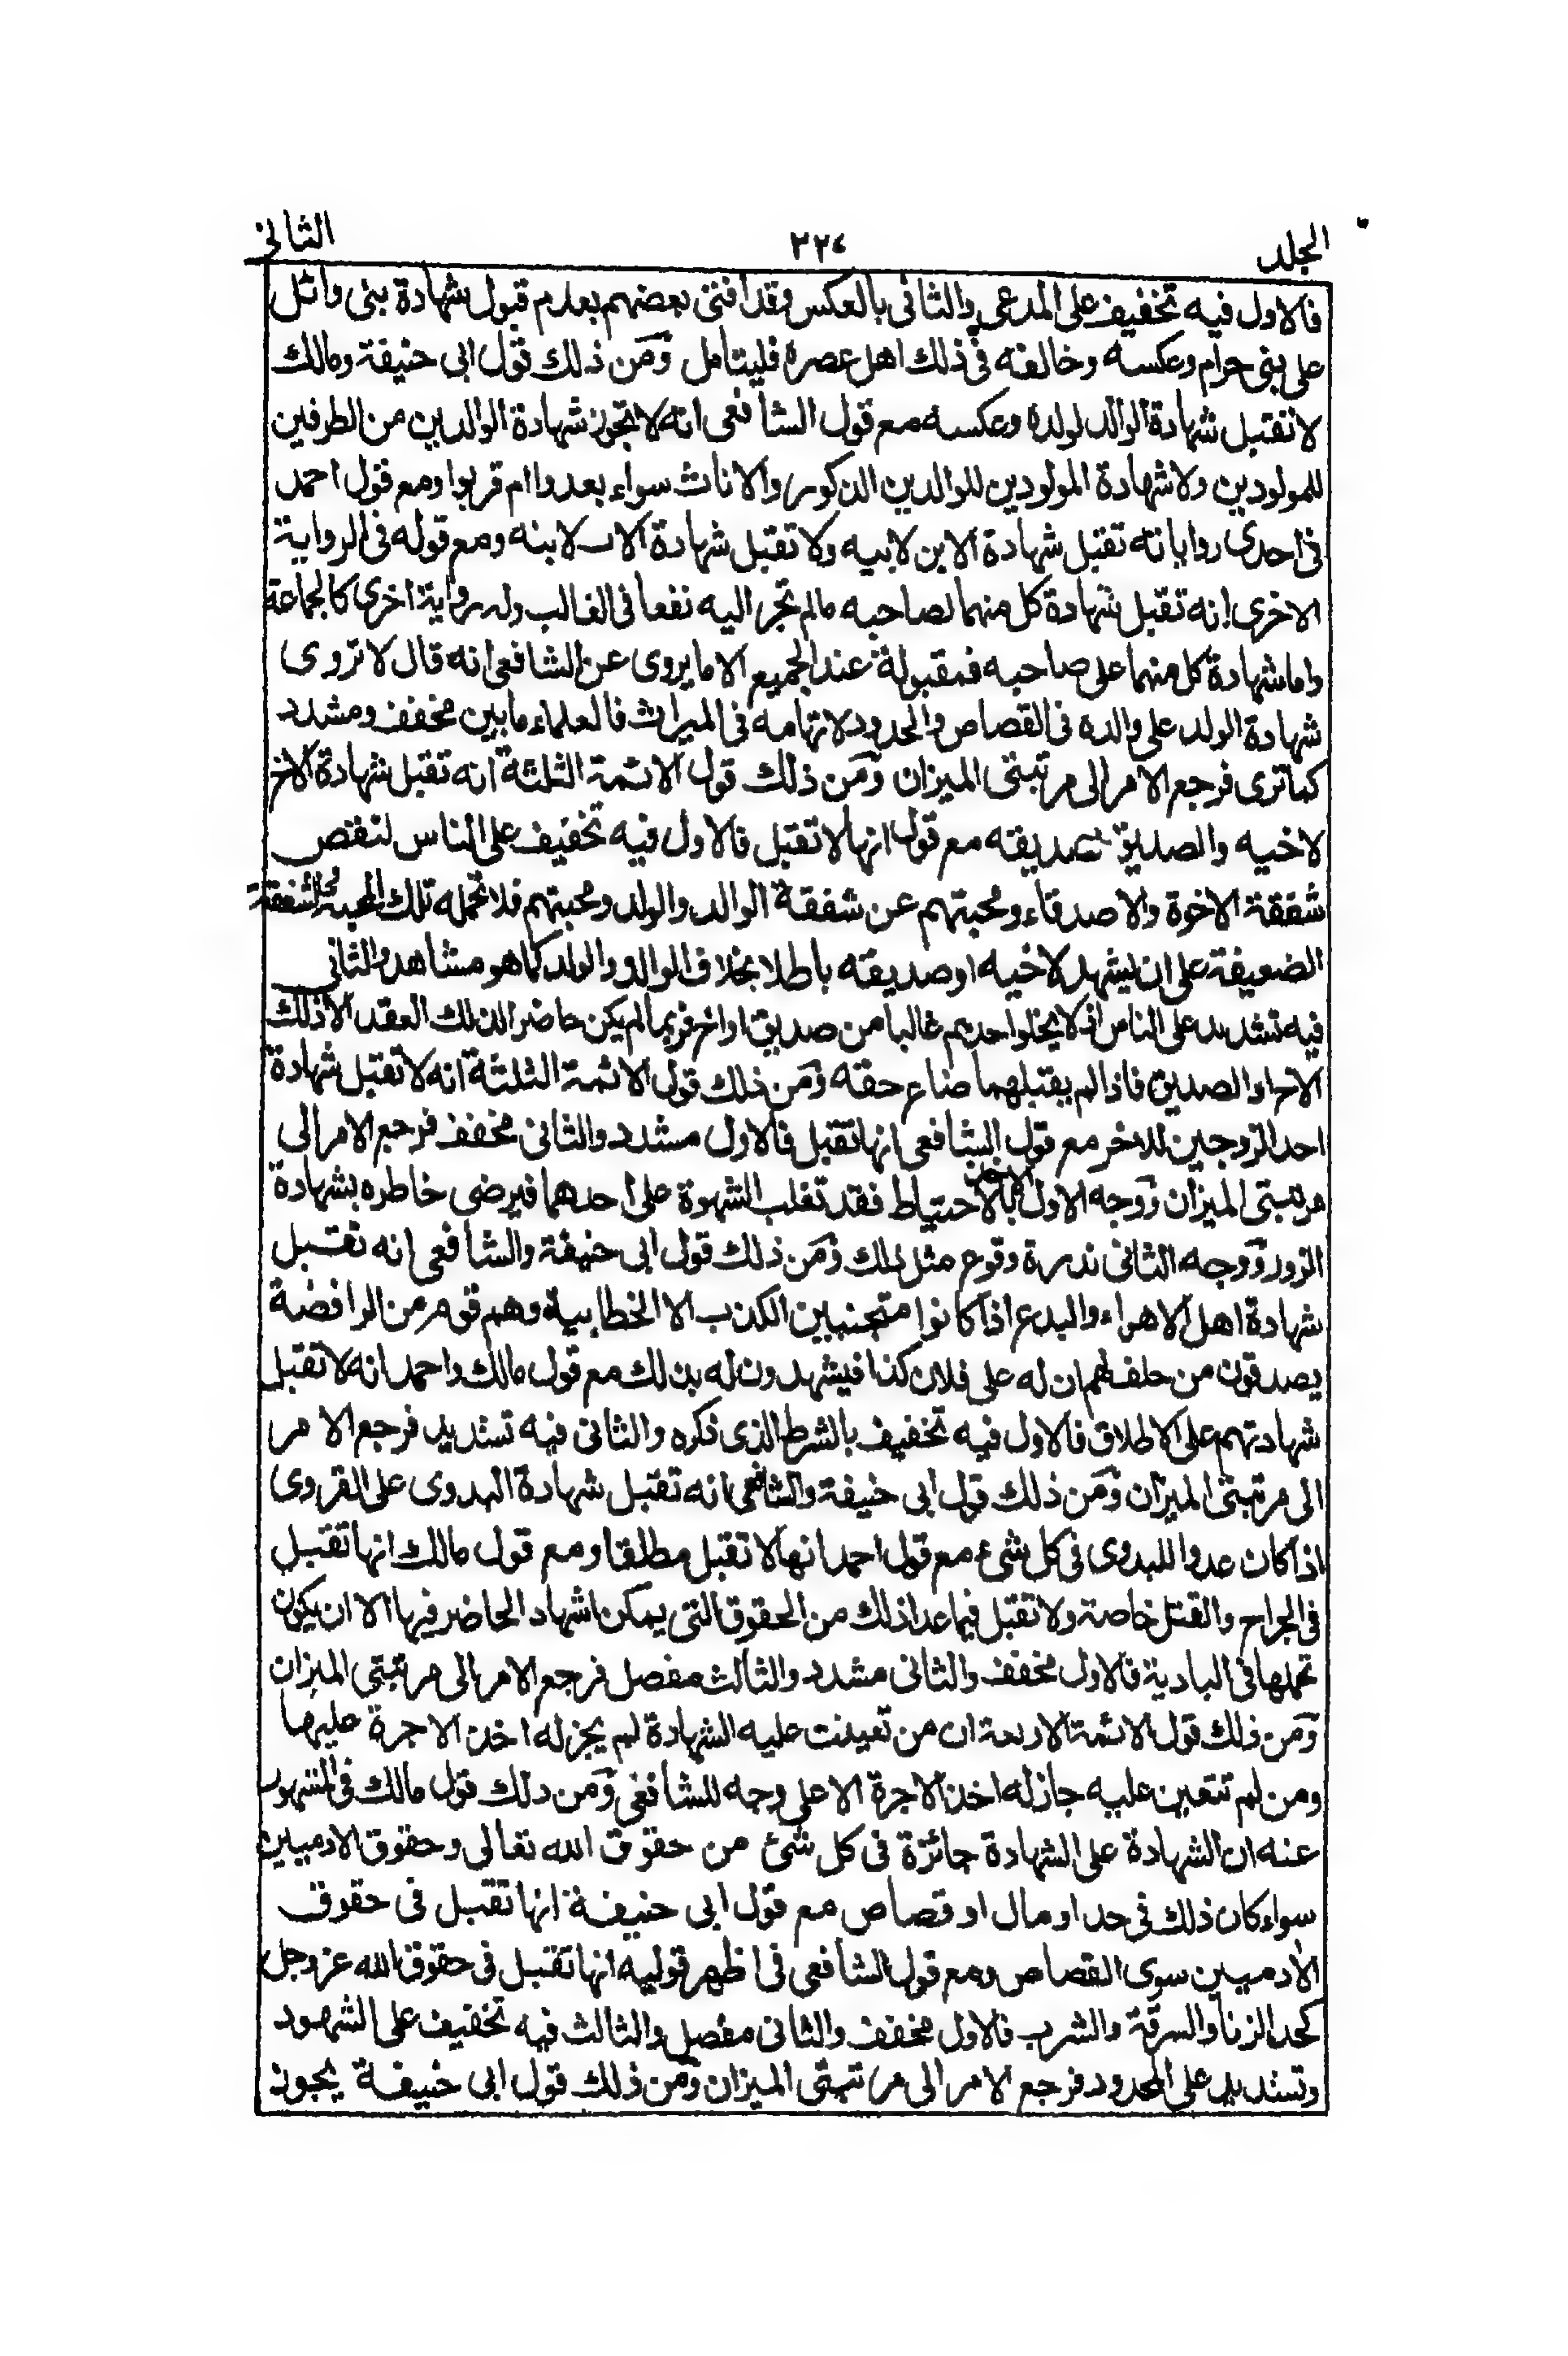 المجلد
٣٢٤
الثانى
فالاول فيه تخفيف على المدعى والثانى بالعكس وقد افتى بعضهم بعدم قبول شهادة بنى وائل
على بنى حرام وعكسه وخالفه فى ذلك اهل عصره فليتامل ومن ذلك قول ابى حنيفة ومالك
لا تقبل شهادة الوالد لولده وعكسه مع قول الشافعى انه لا تجوز شهادة الوالدين من الطرفين
للمولودين ولا شهادة المولودين للوالدين الذكور والاناث سواء بعدوا ام قربوا ومع قول احمد
فى احدى رواياته تقبل شهادة الابن لابيه ولا تقبل شهادة الاب لابنه ومع قوله فى الرواية
الاخرى انه تقبل شهادة كل منهما لصاحبه مالم تجر اليه نفعا فى الغالب وله رواية اخرى كالجماعة
واما شهادة كل منهما على صاحبه فمقبولة عند الجميع الا ما يروى عن الشافعى انه قال لا تروى
شهادة الولد على والده فى القصاص والحدود لاتهامه فى الميراث فالعلماء ما بين مخفف ومشدد
كما ترى فرجع الامر الى مرتبتى الميزان ومن ذلك قول الائمة الثلثة انه تقبل شهادة الاخ
لاخيه والصديق لصديقه مع قول انها لا تقبل فالاول فيه تخفيف على الناس لنقص
شفقة الاخوة والاصدقاء ومحبتهم عن شفقة الوالد والولد ومحبتهم فلا تحمله تلك المحبة والشفقة
الضعيفة على ان يشهد لاخيه او صديقه باطلا بخلاف الوالد والولد كما هو مشاهد والثانى
فيه تشديد على الناس اذ لا يخلوا احدهم غالبا من صديق او اخ فربما لم يكن حاضر الذلك العقد الا ذلك
الاخ او الصديق فاذا لم يقبلهما ضاع حقه ومن ذلك قول الائمة الثلثة انه لا تقبل شهادة
احد الزوجين للاخر مع قول الشافعى انها تقبل فالاول مشدد والثانى مخفف فرجع الامر الى
مرتبتى الميزان ووجه الاول الاخذ بالاحتياط فقد تغلب الشهوة على احدهما فيرضى خاطره بشهادة
الزور ووجه الثانى ندرة وقوع مثل ذلك ومن ذلك قول ابى حنيفة والشافعى انه تقبل
شهادة اهل الاهواء والبدع اذا كانوا متجنبين الكذب الا الخطابية وهم قوم من الرافضة
يصدقون من حلف لهم ان له على فلان كذا فيشهدون له بذلك مع قول مالك واحمد انه لا تقبل
شهادتهم على الاطلاق فالاول فيه تخفيف بالشرط الذى ذكره والثانى فيه تشديد فرجع الامر
الى مرتبتى الميزان ومن ذلك قول ابى حنيفة والشافعى انه تقبل شهادة البدوى على القروى
اذا كان عدوا للبدوى فى كل شئ مع قول احمد انها لا تقبل مطلقا ومع قول مالك انها تقبل
فى الجراح والقتل خاصة ولا تقبل فيما عدا ذلك من الحقوق التى يمكن اشهاد الحاضر فيها الا ان يكون
تحملها فى البادية فالاول مخفف والثانى مشدد والثالث مفصل فرجع الامر الى مرتبتى الميزان
ومن ذلك قول الائمة الاربعة ان من تعينت عليه الشهادة لم يجز له اخذ الاجرة عليها
ومن لم تتعين عليه جاز له اخذ الاجرة الا على وجه للشافعى ومن ذلك قول مالك فى المشهور
عنه ان الشهادة على الشهادة جائزة فى كل شئ من حقوق الله تعالى وحقوق الادميين
سواء كان ذلك فى حد او مال او قصاص مع قول ابى حنيفة انها تقبل فى حقوق
الادميين سوى القصاص ومع قول الشافعى فى اظهر قوليه انها تقبل فى حقوق الله عز وجل
كحد الزنا والسرقة والشرب فالاول مخفف والثانى مفصل والثالث فيه تخفيف على الشهود
وتشديد على المحدود فرجع الامر الى مرتبتى الميزان ومن ذلك قول ابى حنيفة يجوز